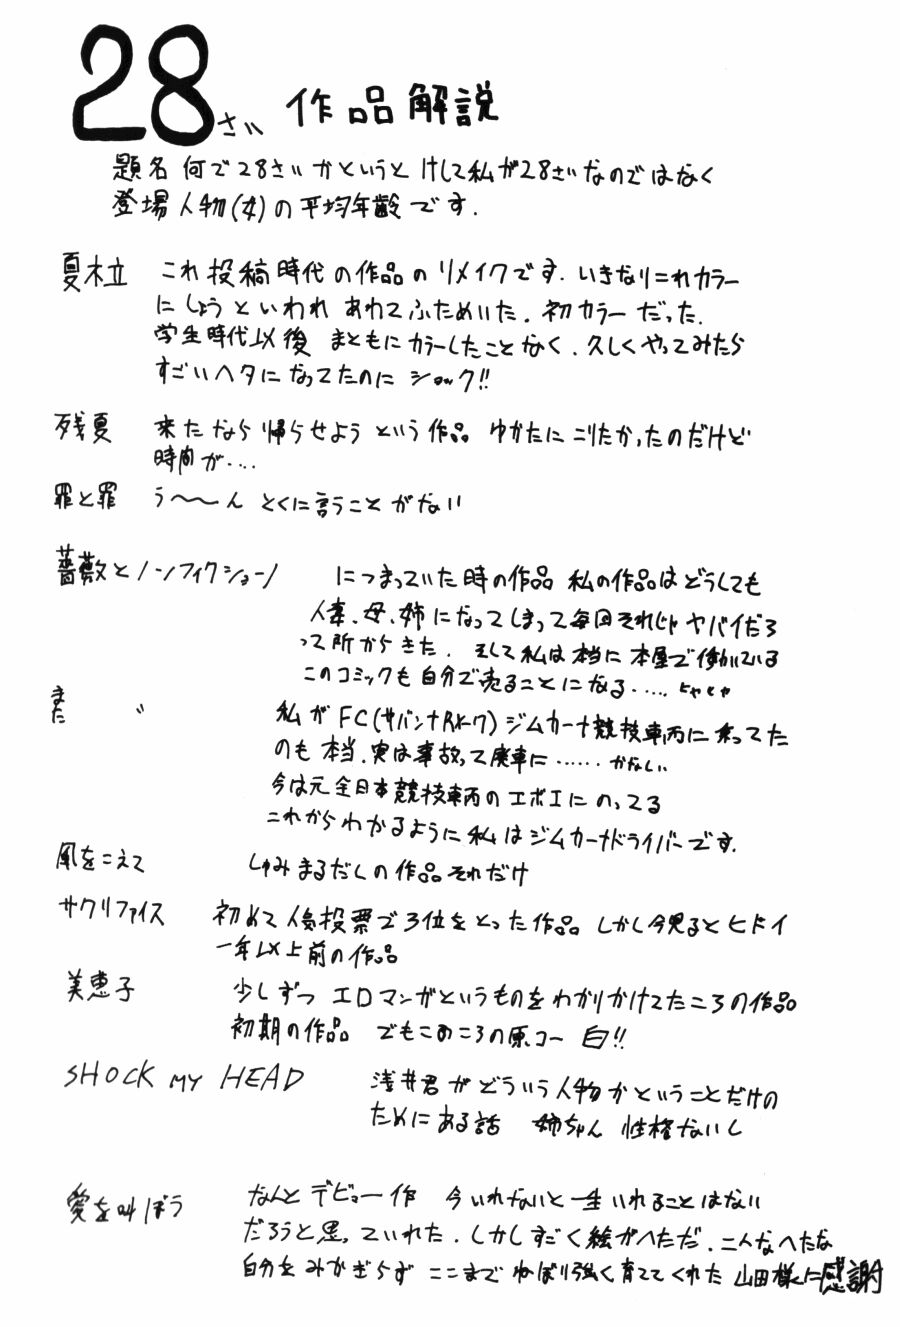 28さい 作品解説
題名 何で28さいかというと けして私が28さいなのではなく
登場人物(女)の平均年齢です.
夏木立 これ投稿時代の作品のリメイクです. いきなりこれカラー
にしようといわれ あわてふためいた. 初カラーだった.
学生時代以後 まともにカラーしたことなく. 久しくやってみたら
すごいヘタになってたのにショック!!
残夏 来たなら帰らせようという作品 ゆかたにこりたかったのだけど
時間が‥‥
罪と罪 う〜〜ん とくに言うことがない
薔薇とノンフィクション につまっていた時の作品 私の作品はどうしても
人妻、母、姉になってしまって毎回それじゃヤバイだろ
って所からきた. そして私は本当に本屋で働いている
このコミックも自分で売ることになる‥‥‥ とやとや
また 〃 私がFC(サバンナRX-7)ジムカーナ競技車両に乗ってた
のも本当. 実は事故って廃車に‥‥‥ かなしい
今は元全日本競技車両のエボIにのってる
これからわかるように私はジムカーナドライバーです.
風をこえて しゅみまるだしの作品それだけ
サクリファイス 初めて人気投票で3位をとった作品 しかし今見るとヒドイ
一年以上前の作品
美恵子 少しずつ エロマンガというものをわかりかけてたころの作品
初期の作品 でもこのころの原コー 白!!
SHOCK MY HEAD 浅井君がどういう人物かということだけの
ためにある話 姉ちゃん 性格ないし
愛を叫ぼう なんとデビュー作 今いれないと一生いれることはない
だろうと思っていれた. しかしすごく絵がへただ. こんなへたな
自分をみかぎらず ここまでねばり強く育ててくれた 山田様に感謝